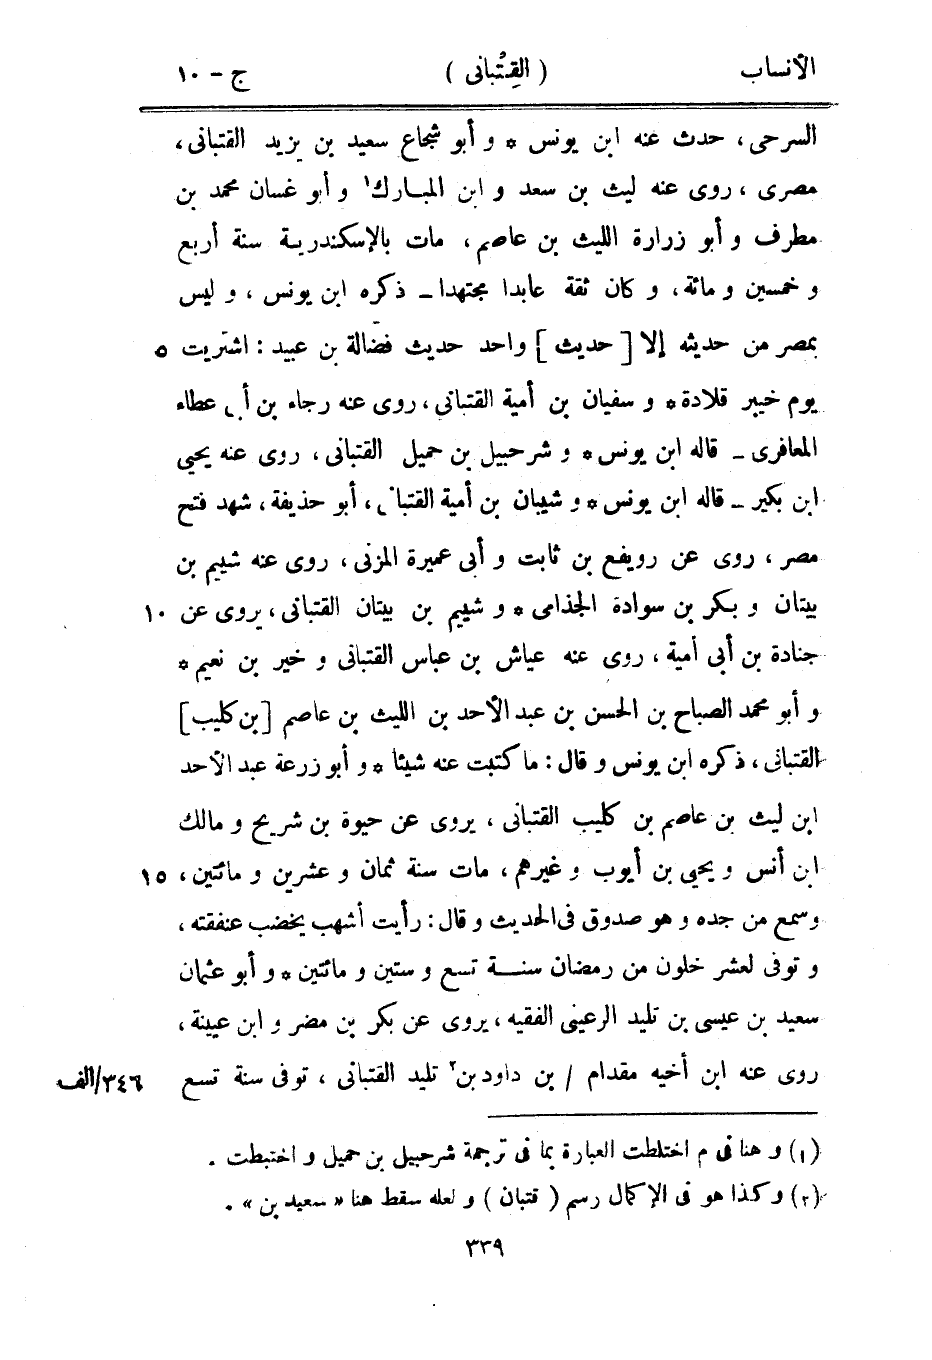 الأنساب ( القِتْبانى ) ج - ١٠
السرحى، حدث عنه ابن يونس * و أبو شجاع سعيد بن يزيد القتبانى،
مصرى، روى عنه ليث بن سعد و ابن المبارك١ و أبو غسان محمد بن
مطرف و أبو زرارة الليث بن عاصم، مات بالإسكندرية سنة أربع
و خمسين و مائة، و كان ثقة عابدا مجتهدا ــ ذكره ابن يونس، و ليس
بمصر من حديثه إلا [ حديث ] واحد حديث فضالة بن عبيد : اشتريت ٥
يوم خيبر قلادة * و سفيان بن أمية القتبانى، روى عنه رجاء بن أبى عطاء
المعافرى ــ قاله ابن يونس * و شرحبيل بن حميل القتبانى، روى عنه يحيى
ابن بكير ــ قاله ابن يونس * و شيبان بن أمية القتبانى، أبو حذيفة، شهد فتح
مصر، روى عن رويفع بن ثابت و أبى عميرة المزنى، روى عنه شييم بن
بيتان و بكر بن سوادة الجذامى * و شييم بن بيتان القتبانى، يروى عن ١٠
جنادة بن أبى أمية، روى عنه عياش بن عباس القتبانى و خير بن نعيم *
و أبو محمد الصباح بن الحسن بن عبد الأحد بن الليث بن عاصم [بن كليب]
القتبانى، ذكره ابن يونس و قال : ما كتبت عنه شيئا * و أبو زرعة عبد الأحد
ابن ليث بن عاصم بن كليب القتبانى، يروى عن حيوة بن شريح و مالك
ابن أنس و يحيى بن أيوب و غيرهم، مات سنة ثمان و عشرين و مائتين، ١٥
وسمع من جده و هو صدوق فى الحديث و قال : رأيت أشهب يخضب عنفقته،
و توفى لعشر خلون من رمضان سنة تسع و ستين و مائتين * و أبو عثمان
سعيد بن عيسى بن تليد الرعينى الفقيه، يروى عن بكر بن مضر و ابن عيينة،
روى عنه ابن أخيه مقدام / بن داود بن٢ تليد القتبانى، توفى سنة تسع ٣٤٦/الف
(١) و هنا فى م اختلطت العبارة بما فى ترجمة شرحبيل بن حميل و اختبطت .
(٢) و كذا هو فى الإكمال رسم ( قتبان ) و لعله سقط هنا « سعيد بن » .
٣٣٩